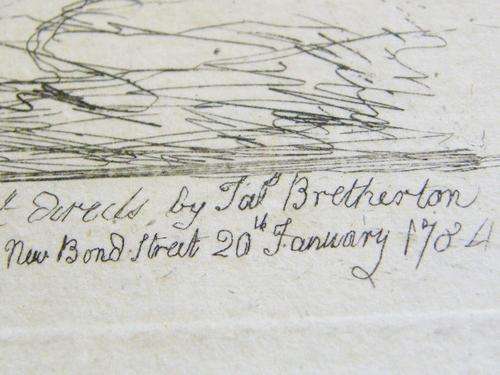 t directs, by Jas. Bretherton
New Bond Street 20th January 1784